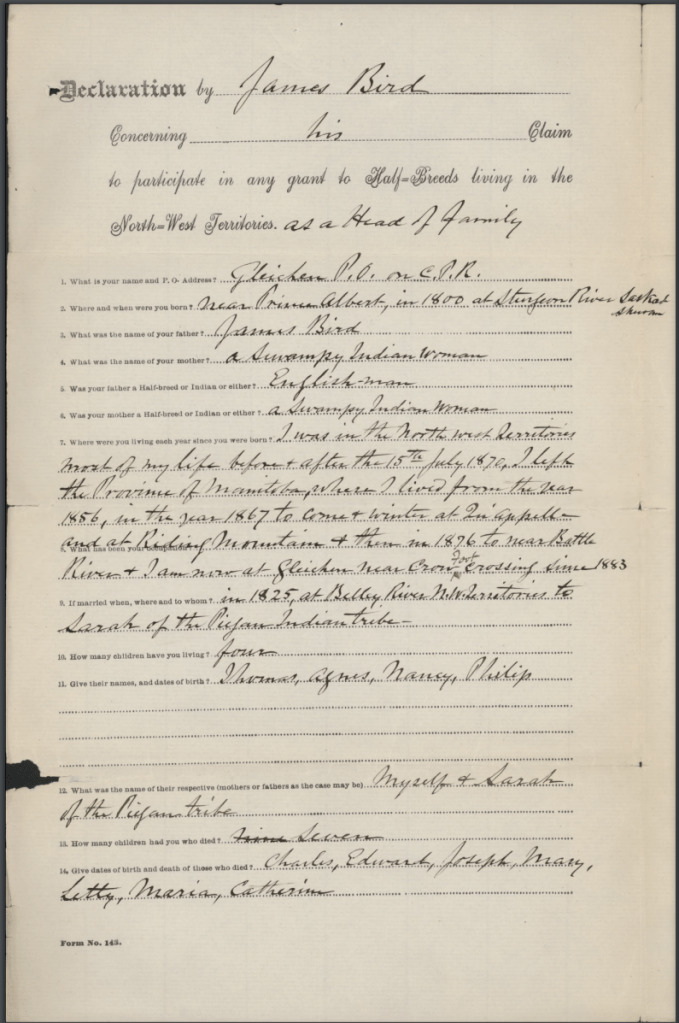 Declaration by James Bird
Concerning his Claim
to participate in any grant to Half=Breeds living in the
North=West Territories. as a Head of Family
1. What is your name and P. O. Address? Gleichen P.O. on C.P.R.
2. Where and when were you born? near Prince Albert, in 1800 at Sturgeon River Saskat
shewan
3. What was the name of your father? James Bird
4. What was the name of your mother? a Swampy Indian Woman
5. Was your father a Half-breed or Indian or either? English-man
6. Was your mother a Half-breed or Indian or either? a Swampy Indian Woman
7. Where were you living each year since you were born? I was in the North west Territories
most of my life before & after the 15th July 1870, I left
the Province of Manitoba, where I lived from the year
1856, in the year 1867 to come & winter at Qu'appelle
and at Riding Mountain & then in 1876 to near Battle
8. What has been your occupation?
River & I am now at Gleichen near Crow Foot Crossing since 1883
9. If married when, where and to whom? in 1825, at Belley River N.W. Territories to
Sarah of the Piegan Indian tribe -
10. How many children have you living? four
11. Give their names, and dates of birth? Thomas, Agnes, Nancy, Philip
12. What was the name of their respective (mothers or fathers as the case may be) Myself & Sarah
of the Piegan tribe
13. How many children had you who died? nine Seven
14. Give dates of birth and death of these who died? Charles, Edward, Joseph, Mary,
Letty, Maria, Catherine
Form No. 145.